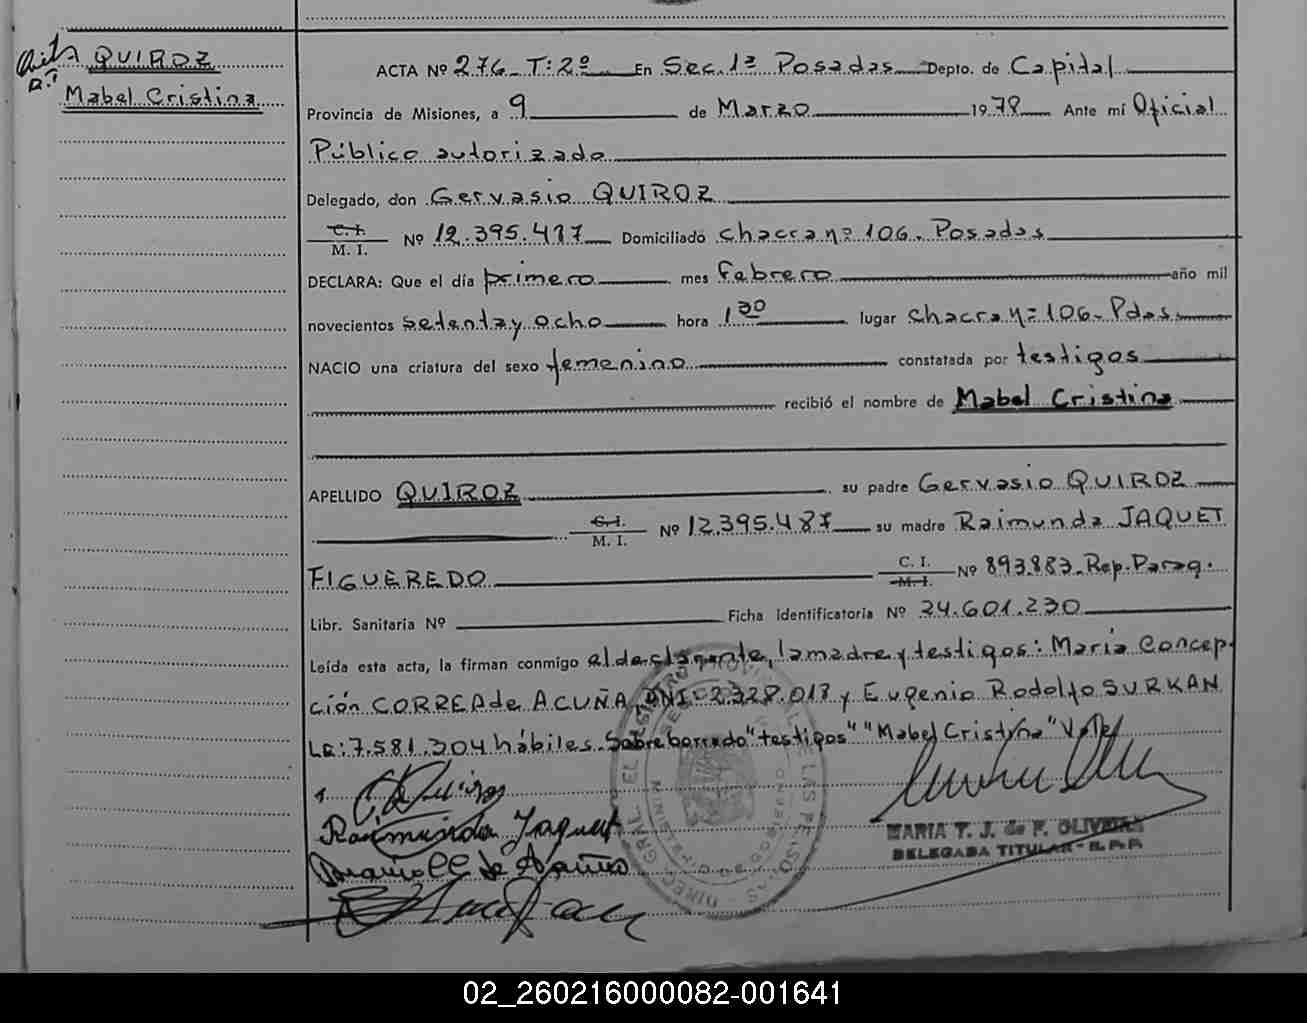 Acta QUIROZ
Dº: Mabel Cristina
ACTA Nº 276 T:2º En Sec. 1ª Posadas Depto. de Capital
Provincia de Misiones, a 9 de Marzo 1978 Ante mí Oficial
Público autorizado
Delegado, don Gervasio QUIROZ
C. I.
M. I. Nº 12.395.487 Domiciliado chacra nº 106. Posadas
DECLARA: Que el día primero mes febrero año mil
novecientos setenta y ocho hora 1 30 lugar chacra nº 106- Pdas.
NACIO una criatura del sexo femenino constatada por testigos
recibió el nombre de Mabel Cristina
APELLIDO QUIROZ su padre Gervasio QUIROZ
C. I.
M. I. Nº 12.395.487 su madre Raimunda JAQUET
FIGUEREDO C. I.
M. I. Nº 893.883-Rep. Parag.
Libr. Sanitaria Nº Ficha Identificatoria Nº 24.601.230
Leída esta acta, la firman conmigo el declarante, la madre y testigos: María Concep-
ción CORREA de ACUÑA, DNI: 2.328.018 y Eugenio Rodolfo SURKAN
LE: 7.581.304 hábiles. Sobre borrado "testigos" "Mabel Cristina" Vale
Raimunda Jaquet
MARIA T. J. de F. OLIVEIRA
DELEGADA TITULAR - R.P.P.
02_260216000082-001641